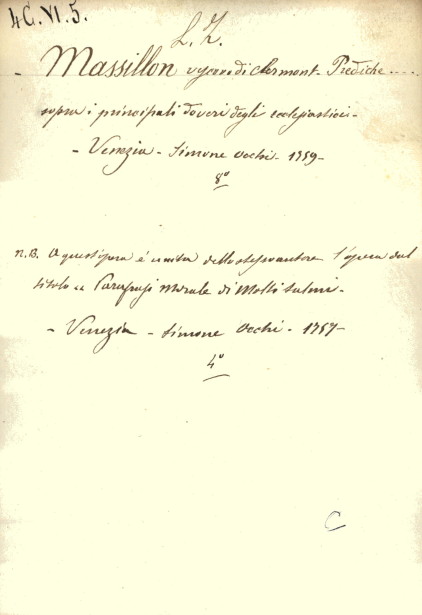 4G.VI.5.
L. Z.
- Massillon vescovo di Clermont - Prediche ....
sopra i principali doveri degli ecclesiastici -
- Venezia - Simone Occhi - 1759 -
8°
N.B. A quest'opera è unita dello stesso autore l'opera dal
titolo = Parafrasi Morale di Molti Salmi -
- Venezia - Simone Occhi - 1757 -
4°
C